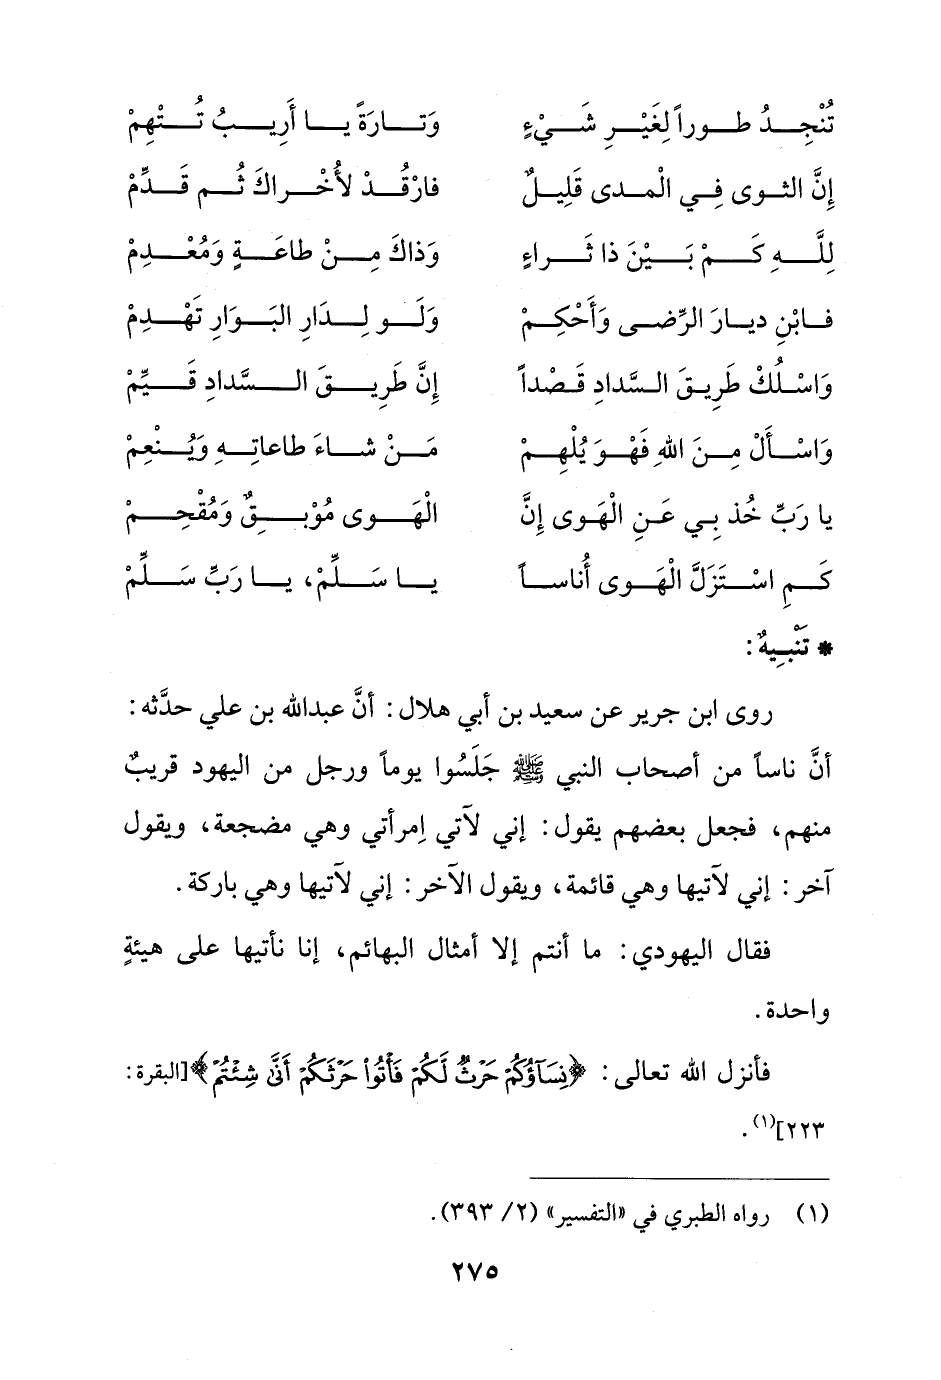 تُنْجِدُ طوراً لِغَيْرِ شَيْءٍ وَتارَةً يا أَرِيبُ تُتْهِمْ
إِنَّ الثوى فِي الْمدى قَلِيلٌ فارْقُدْ لأُخْراكَ ثُم قَدِّمْ
لِلَّهِ كَمْ بَيْنَ ذا ثَراءٍ وَذاكَ مِنْ طاعَةٍ وَمُعْدِمْ
فابْنِ ديارَ الرِّضى وَأَحْكِمْ وَلَو لِدَارِ البَوَارِ تَهْدِمْ
وَاسْلُكْ طَرِيقَ السَّدادِ قَصْداً إِنَّ طَرِيقَ السَّدادِ قَيِّمْ
وَاسْأَلْ مِنَ اللهِ فَهْوَ يُلْهِمْ مَنْ شاءَ طاعاتِهِ وَيُنْعِمْ
يا رَبِّ خُذ بِي عَنِ الْهَوى إِنَّ الْهَوى مُوْبِقٌ وَمُقْحِمْ
كَمِ اسْتَزَلَّ الْهَوى أُناساً يا سَلِّمْ، يا رَبِّ سَلِّمْ
* تَنْبِيهٌ:
روى ابن جرير عن سعيد بن أبي هلال: أنَّ عبدالله بن علي حدَّثه:
أنَّ ناساً من أصحاب النبي ﷺ جَلَسُوا يوماً ورجل من اليهود قريبٌ
منهم، فجعل بعضهم يقول: إني لآتي اِمرأتي وهي مضجعة، ويقول
آخر: إني لآتيها وهي قائمة، ويقول الآخر: إني لآتيها وهي باركة.
فقال اليهودي: ما أنتم إلا أمثال البهائم، إنا نأتيها على هيئةٍ
واحدة.
فأنزل الله تعالى: ﴿نِسَآؤُكُمْ حَرْثٌ لَّكُمْ فَأْتُوا۟ حَرْثَكُمْ أَنَّى شِئْتُمْ﴾ [البقرة:
٢٢٣](١).
(١) رواه الطبري في «التفسير» (٢/ ٣٩٣).
٢٧٥